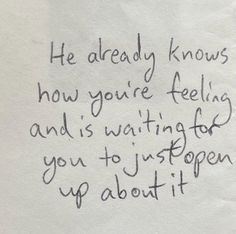 He already knows
how you're feeling
and is waiting for
you to just open
up about it